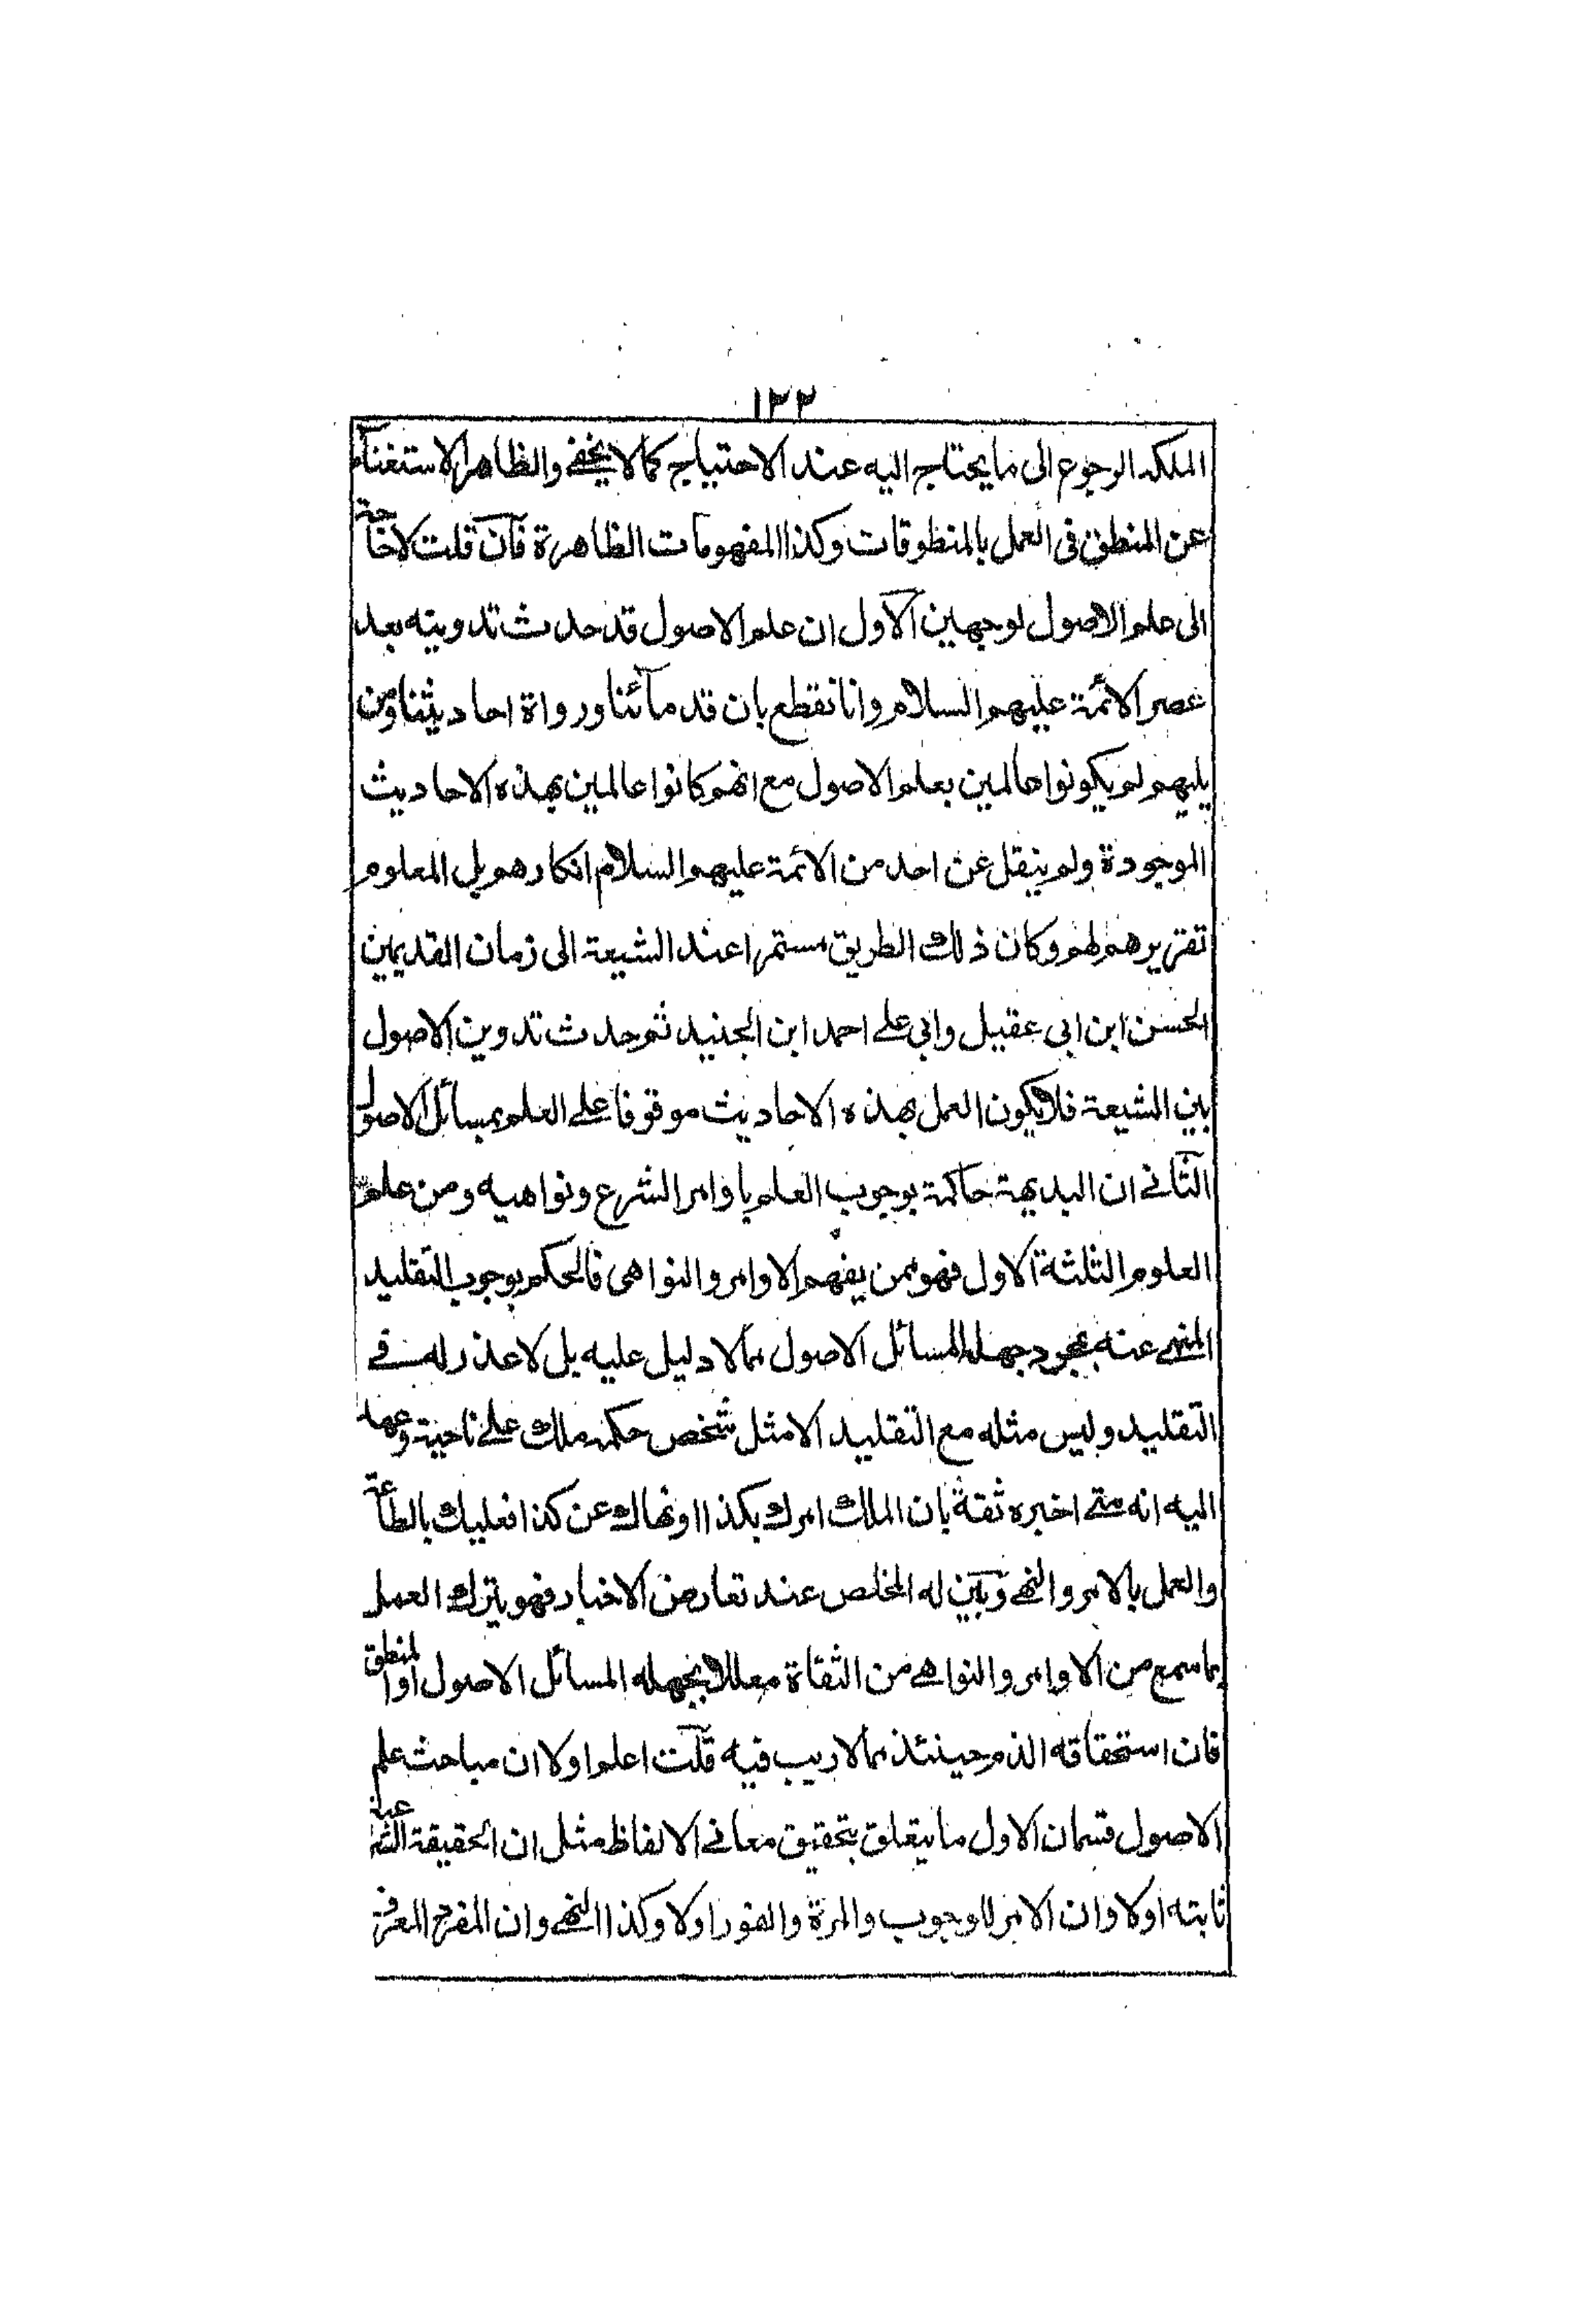 ١٢٢
الملكه الرجوع الى ما يحتاج اليه عند الاحتياج كما لا يخفى والظاهر الاستغناء
عن المنطق فى العمل بالمنطوقات وكذا المفهومات الظاهرة فان قلت لا حاجة
الى علم الاصول لوجهين الاول ان علم الاصول قد حدث تدوينه بعد
عصر الائمة عليهم السلام وانا نقطع بان قدمائنا ورواة احاديثنا ومن
يليهم لم يكونوا عالمين بعلم الاصول مع انهم كانوا عالمين بهذه الاحاديث
الموجودة ولم ينقل عن احد من الائمة عليهم السلام انكارهم بل المعلوم
تقريرهم لهم وكان ذلك الطريق مستمرا عند الشيعة الى زمان القديمين
الحسن ابن ابى عقيل وابي على احمد ابن الجنيد ثم حدث تدوين الاصول
بين الشيعة فلا يكون العمل بهذه الاحاديث موقوفا على العلم بمسائل الاصول
الثانى ان البديهة حاكمة بوجوب العلم باوامر الشرع ونواهيه ومن علم
العلوم الثلثة الاول فهو ممن يفهم الاوامر والنواهى فالحكم بوجوب التقليد
المنهى عنه بمجرد جهله المسائل الاصول مما لا دليل عليه بل لا عذر له فى
التقليد وليس مثله مع التقليد الا مثل شخص حكمه ملك على ناحية وعهد
اليه انه متى اخبره ثقة بان الملك امرك بكذا او نهاك عن كذا فعليك بالطاعة
والعمل بالامر والنهى وبين له المخلص عند تعارض الاخبار فهو يترك العمل
بما سمع من الاوامر والنواهى من الثقاة معللا بجهله المسائل الاصول او المنطق
فان استحقاقه الذم حينئذ مما لا ريب فيه قلت اعلم اولا ان مباحث علم
الاصول قسمان الاول ما يتعلق بتحقيق معانى الالفاظ مثل ان الحقيقة الشرعية
ثابته اولا وان الامر للوجوب والمرة والفور اولا وكذا النهى وان المفرد المعرف